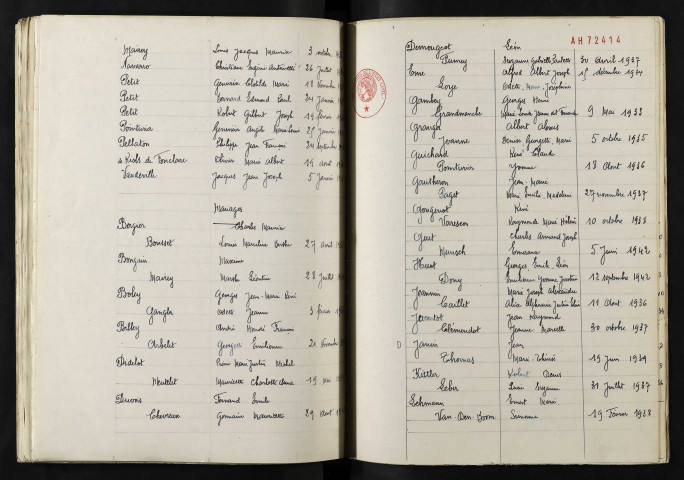 Mairey Louis Jacques Maurice 3 octobre
Navarro Christiane Eugénie Antoinette 26 Juillet
Petit Geneviève Clotilde Marie 18 Novembre
Petit Bernard Edmond Emile 24 Janvier
Petit Robert Gilbert Joseph 14 février
Pointurier Germaine Angèle Marie Louise 25 Janvier
Pellaton Philippe Jean François 24 septembre
de Riols de Fonclare Olivier Marie Albert 14 avril
Vaudeville Jacques Jean Joseph 5 Janvier
Mariages
Bergier Charles Maurice
Bourset Louise Marceline 27 avril
Bongain Maxime
Mairey Marthe 28 Juillet
Boley Georges Jean-Marie René
Gangler Odette Jeanne 3 février
Bolley André Henri François
Chibelet Georgette Emilienne 21 Novembre
Didelot Marie Justin Michel
Mentelet Mauricette Charlotte Anna 19 Mai
Duvois Fernand Emile
Chevreux Germaine Mauricette 29 Août
AH72414
Demougeot Léon
Perney Suzanne Gabrielle 30 Avril 1937
Eme Alfred Albert Joseph 15 décembre 1934
Loye Odette Marie Joséphine
Gambey Georges Henri
Grandmanche Marie Louise Jeanne 9 Mai 1933
Grangy Albert Aloïs
Jeanne Denise Georgette Marie 5 octobre 1935
Guichard René Claude
Pointurier Yvonne 18 Août 1936
Gautheron Jean-Marie
Paget Marie Emilie Madeleine 27 novembre 1937
Gougenot René
Varescon Raymonde Marie Hélène 10 octobre 1938
Guet Charles Armand Joseph
Munsch Emerana 5 Juin 1942
Huot Georges Emile Léon
Domy Emilienne Yvonne Justine 12 septembre 1942
Jeannin Marie Joseph Alexandre
Caillet Alice Alphonsine 11 Août 1936
Jacontot Jean Raymond
Clémendot Jeanne Marcelle 30 octobre 1937
Janin Jean
Thomas Marie Thérèse 19 Juin 1939
Kittler Robert Denis
Geber Lucie Suzanne 31 Juillet 1937
Lehmann Ernest Marie
Van-Den-Boom Simonne 19 Février 1938